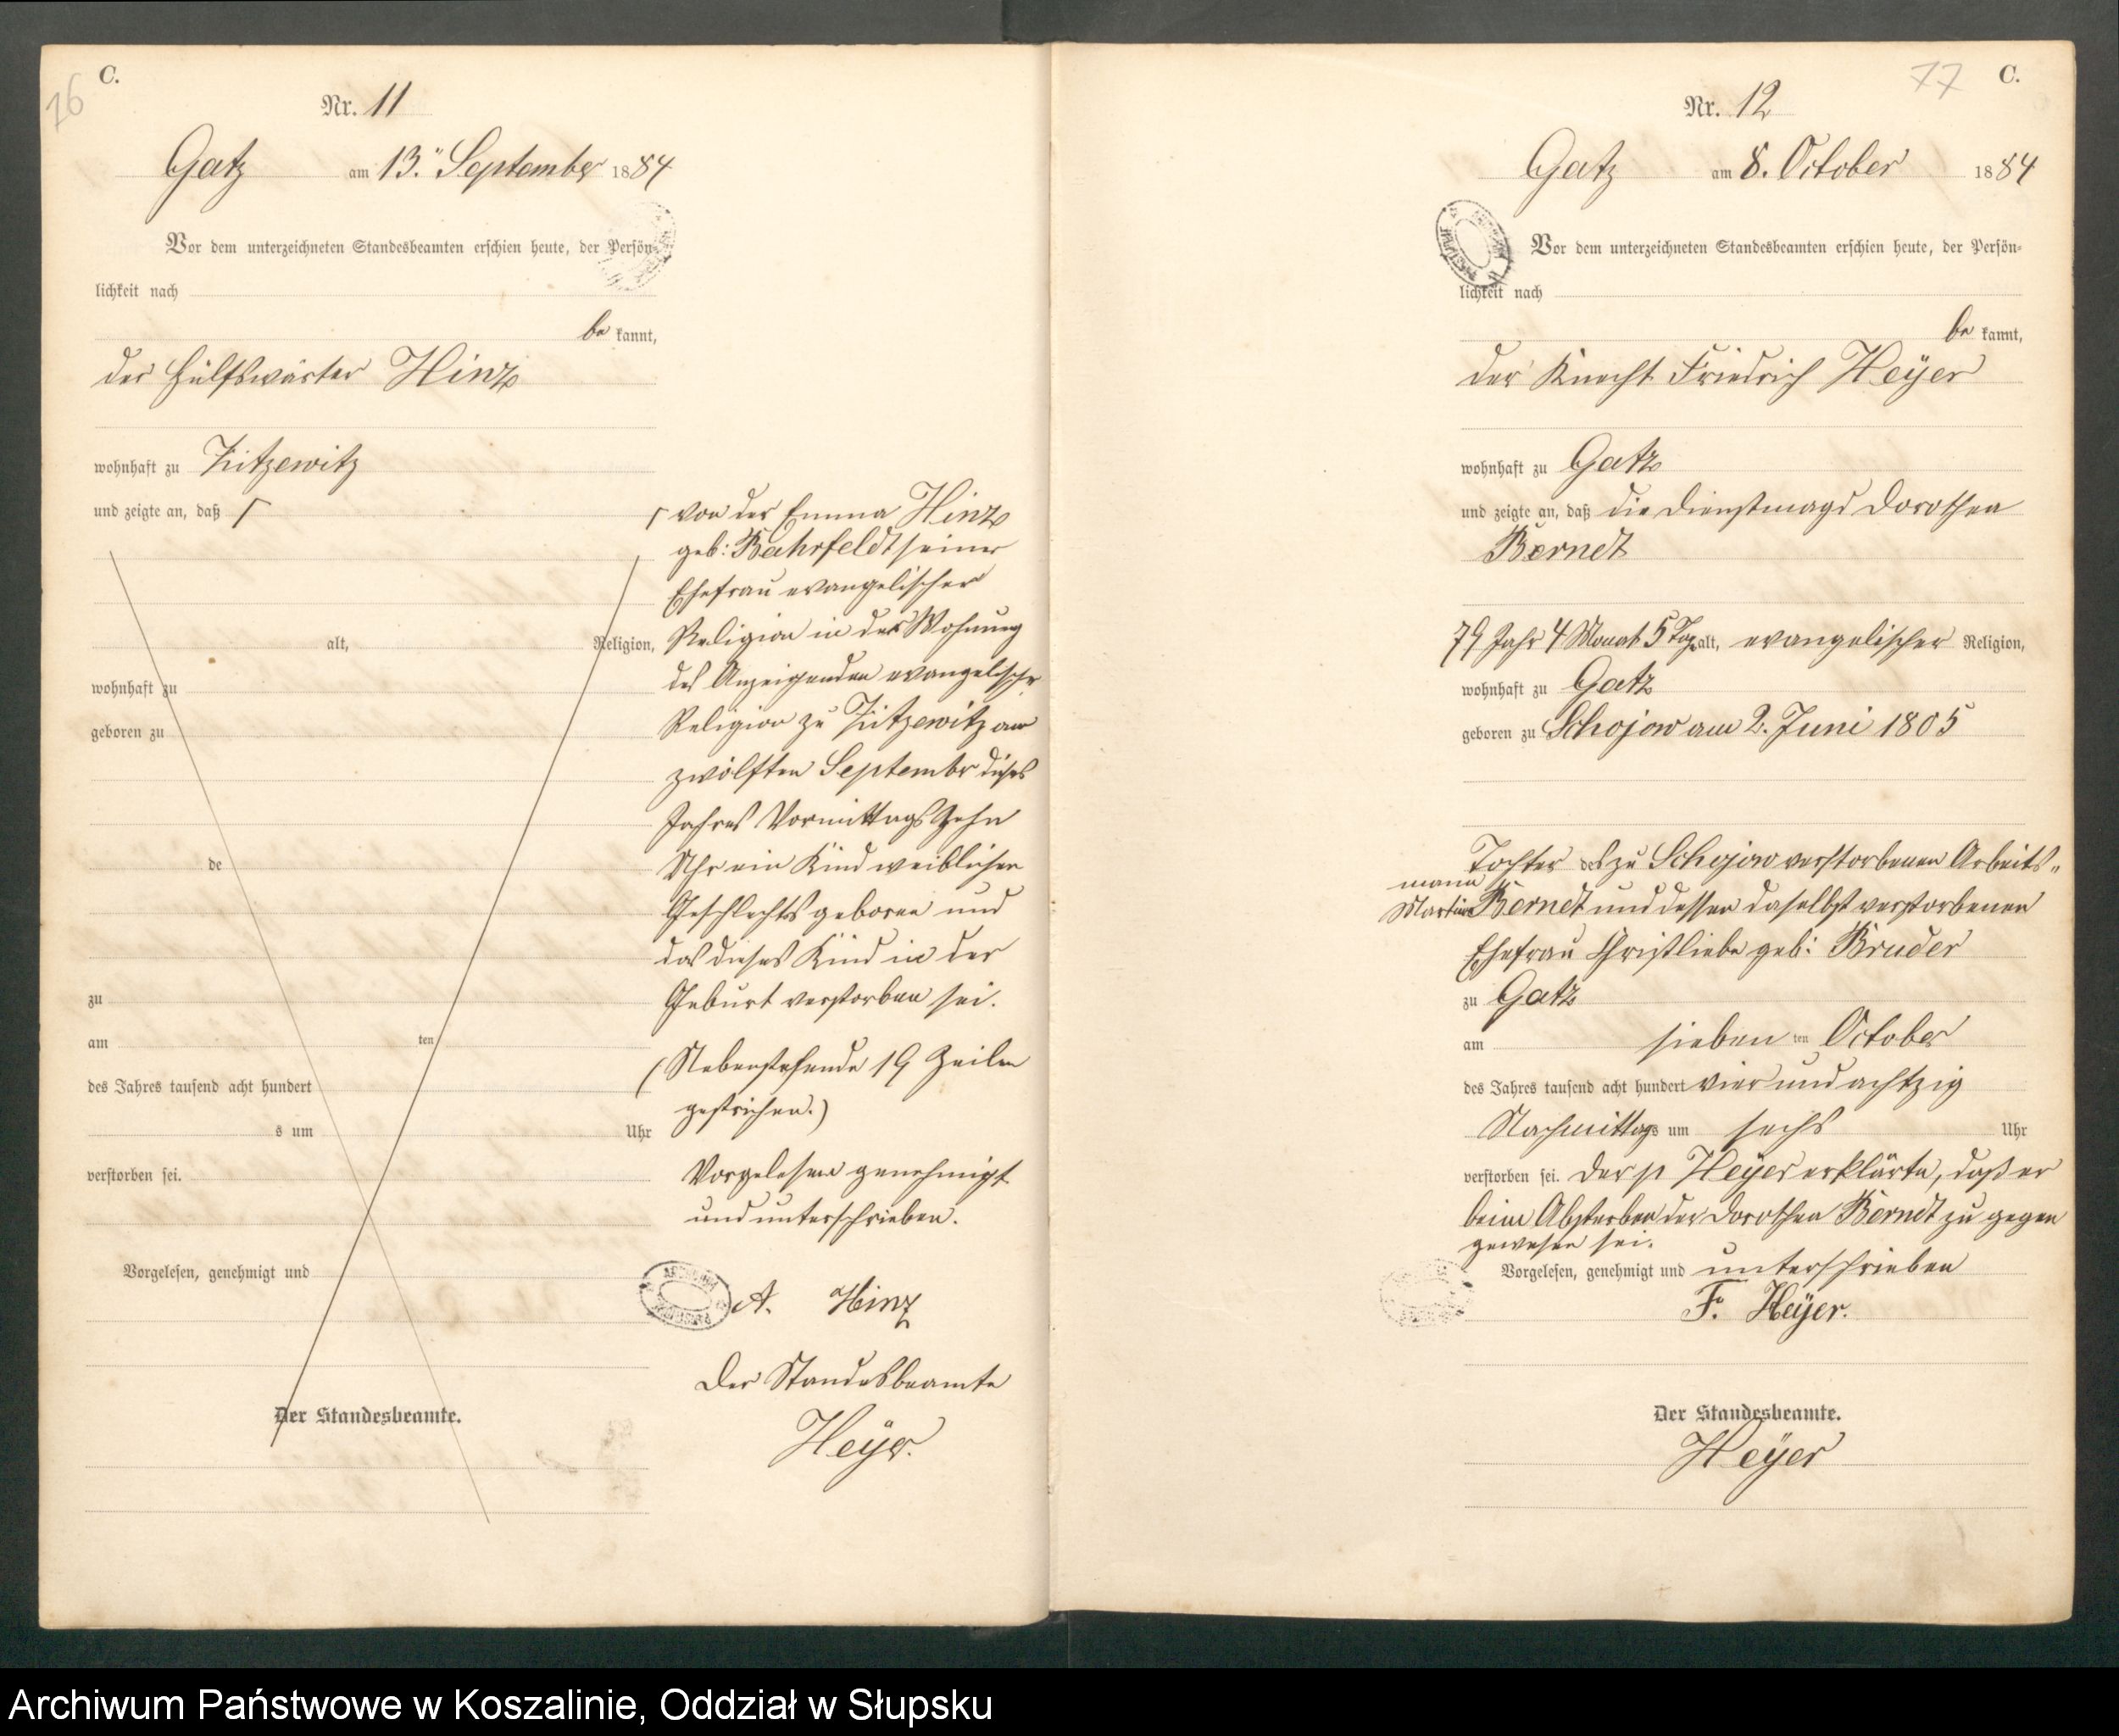 C.
76
Nr. 11
Gatz am 13. September 1884
Vor dem unterzeichneten Standesbeamten erschien heute, der Persön-
lichkeit nach
be kannt,
der Hülfswärter Hinz
wohnhaft zu Zitzewitz
und zeigte an, daß
von der Emma Hinz
geb: Bahrfeldt seiner
Ehefrau evangelischer
alt, Religion,
Religion in der Wohnung
des Anzeigenden evangelischer
wohnhaft zu
Religion zu Zitzewitz am
geboren zu
zwölften September dieses
Jahres Vormittags Zehn
Uhr ein Kind weiblichen
de
Geschlechts geboren und
das dieses Kind in der
Geburt verstorben sei.
zu
am ten
(Nebenstehende 19 Zeilen
gestrichen.)
des Jahres tausend acht hundert
s um Uhr
verstorben sei.
Vorgelesen genehmigt
und unterschrieben.
Vorgelesen, genehmigt und
A. Hinz
Der Standesbeamte
Heyer.
Der Standesbeamte.
77 C.
Nr. 12
Gatz am 8. October 1884
Vor dem unterzeichneten Standesbeamten erschien heute, der Persön-
lichkeit nach
be kannt,
der Knecht Friedrich Heÿer
wohnhaft zu Gatz
und zeigte an, daß die Dienstmagd Dorothea
Berndt
79 Jahr 4 Monat 5 Tag alt, evangelischer Religion,
wohnhaft zu Gatz
geboren zu Schojow am 2. Juni 1805
Tochter des zu Schojow verstorbenen Arbeits-
mann
Martin Berndt und dessen daselbst verstorbenen
Ehefrau Christliebe geb: Bruder
zu Gatz
am sieben ten October
des Jahres tausend acht hundert vier und achtzig
Nachmittags um sechs Uhr
verstorben sei. Der p Heÿer erklärte, daß er
beim Absterben der Dorothea Berndt zu gegen
gewesen sei.
Vorgelesen, genehmigt und unterschrieben
F. Heÿer.
Der Standesbeamte.
Heÿer
Archiwum Państwowe w Koszalinie, Oddział w Słupsku